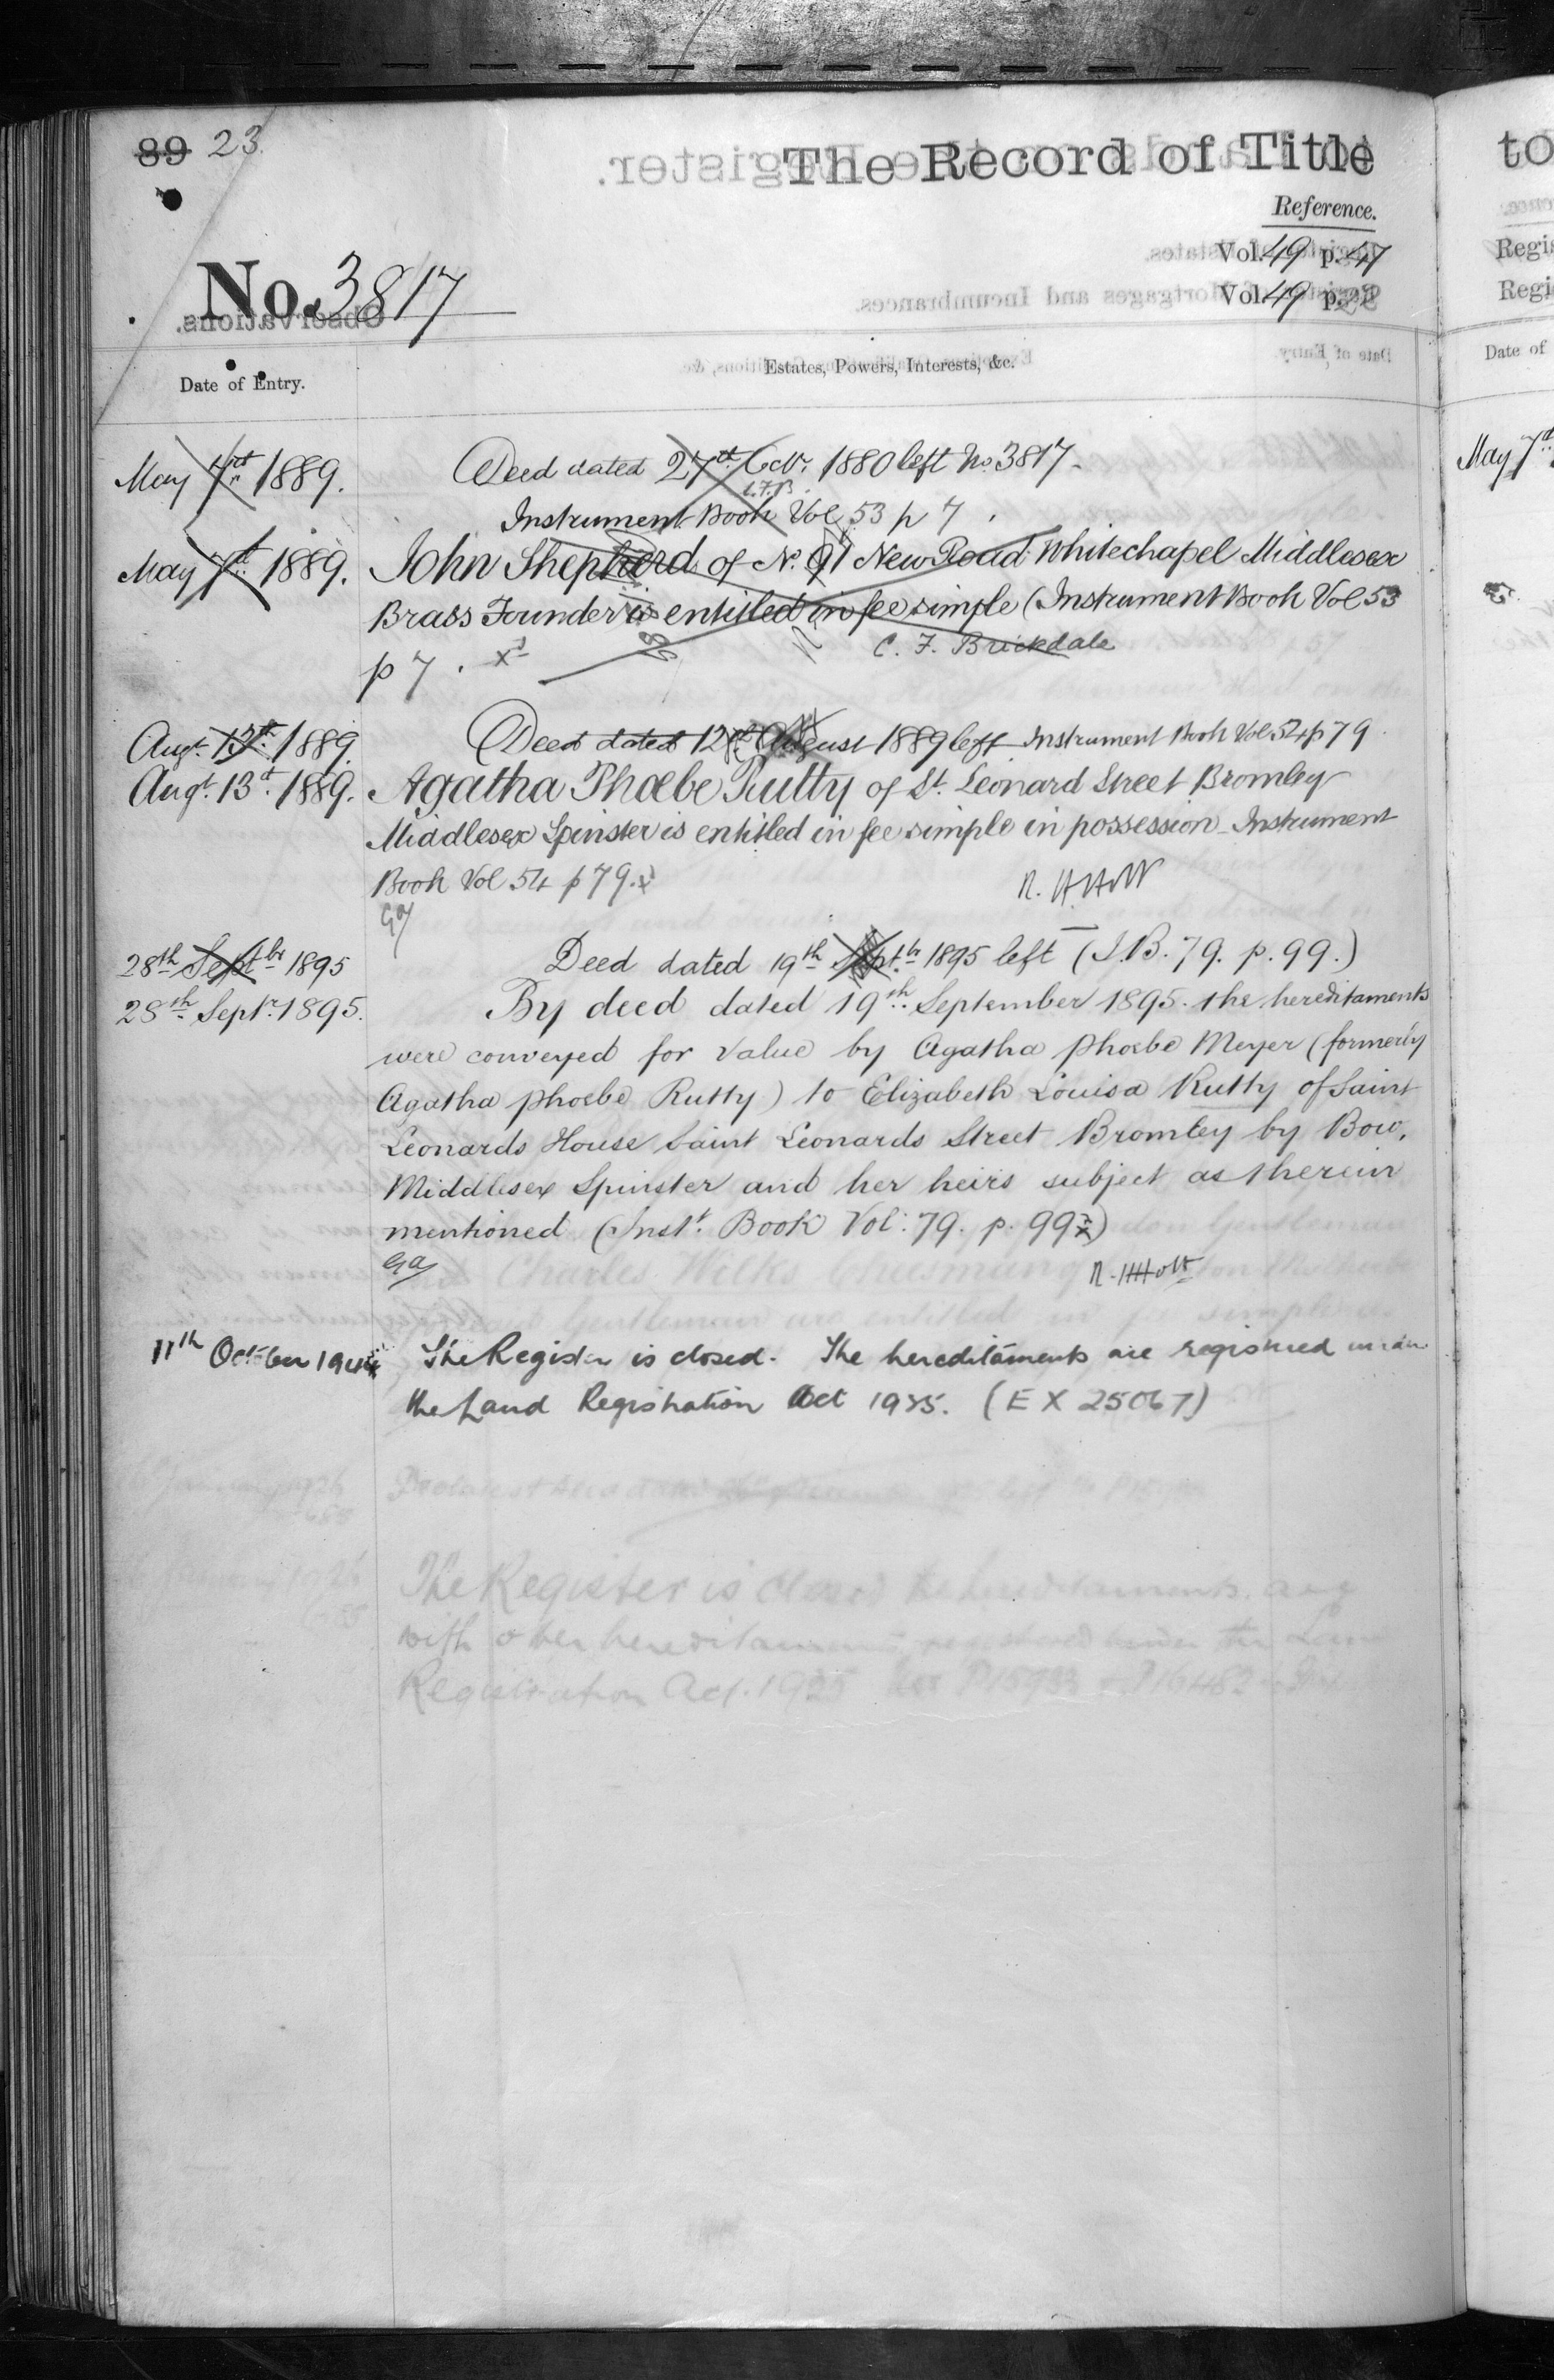 89 23.
The Record of Title
Reference.
Vol. 49 p. 47
Vol. 49 p.
No. 3817
Date of Entry.
Estates, Powers, Interests, &c.
May 7th 1889. Deed dated 27th 1880 left No 3817.
C.F.B.
Instrument Book Vol 53 p 7.
May 7th 1889. John Shepherd of No. 91 New Road Whitechapel Middlesex
Brass Founder is entitled in fee simple (Instrument Book Vol 53
p 7. C. F. Brickdale
Augt. 13th 1889. Deed dated 12th August 1889 left Instrument Book Vol 54 p 79.
Augt. 13th 1889. Agatha Phoebe Rutty of St. Leonard Street Bromley
Middlesex Spinster is entitled in fee simple in possession Instrument
Book Vol 54 p 79.
R. H. Holt
28th Septbr 1895 Deed dated 19th Septbr 1895 left (I.B. 79. p. 99.)
28th Septr. 1895. By deed dated 19th September 1895 the hereditaments
were conveyed for value by Agatha Phoebe Meyer (formerly
Agatha Phoebe Rutty) to Elizabeth Louisa Rutty of Saint
Leonards House Saint Leonards Street Bromley by Bow,
Middlesex Spinster and her heirs subject as therein
mentioned (Inst. Book Vol: 79. p. 99)
R. H. Holt
11th October The Register is closed. The hereditaments are registered under
the Land Registration Act 1925. (EX 25067)
The Register is closed the hereditaments are
with other hereditaments registered under the
Registration Act. 1925
to
Regis
Regi
Date of
May 7th